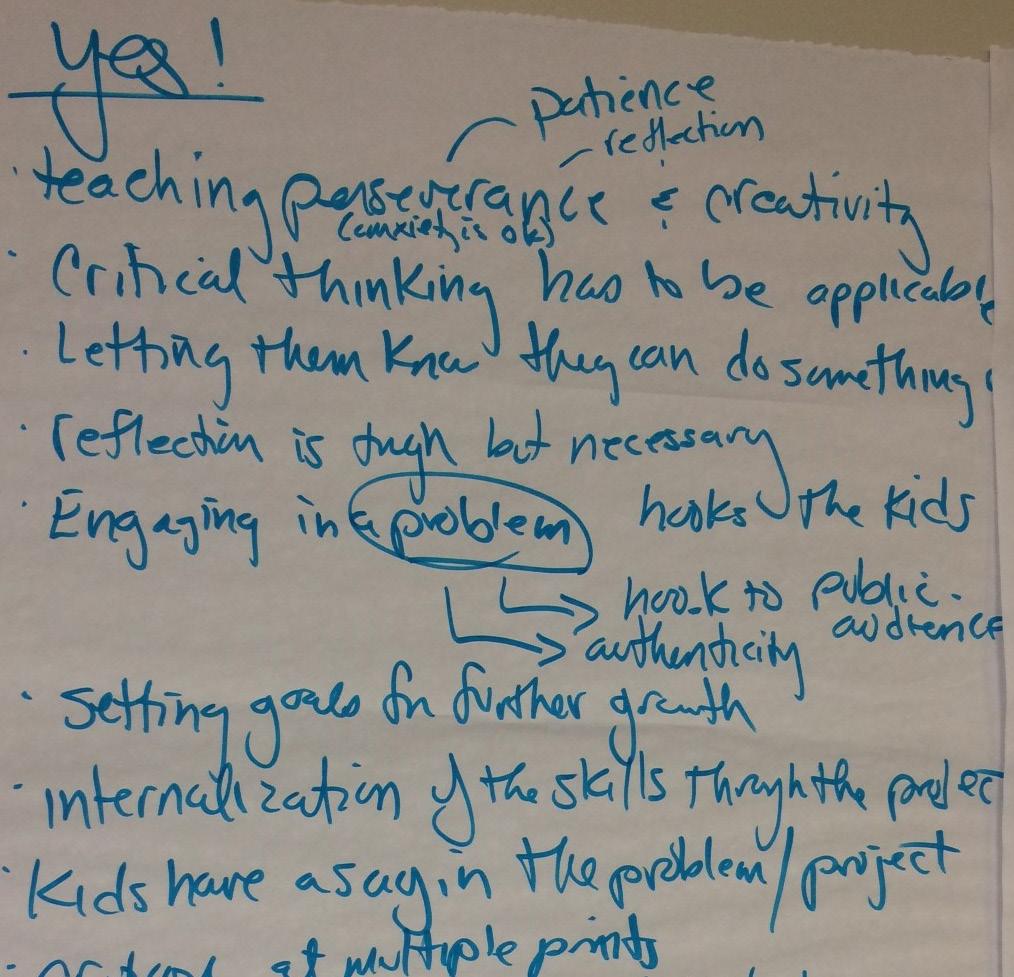 yes!
patience
reflection
· teaching perseverance & creativity
(anxiety is ok)
· Critical thinking has to be applicable
· Letting them know they can do something
· reflection is tough but necessary
· Engaging in a problem hooks the kids
hook to public audience
authenticity
· Setting goals for further growth
· internalization of the skills through the project
· Kids have a say in the problem/project
at multiple points